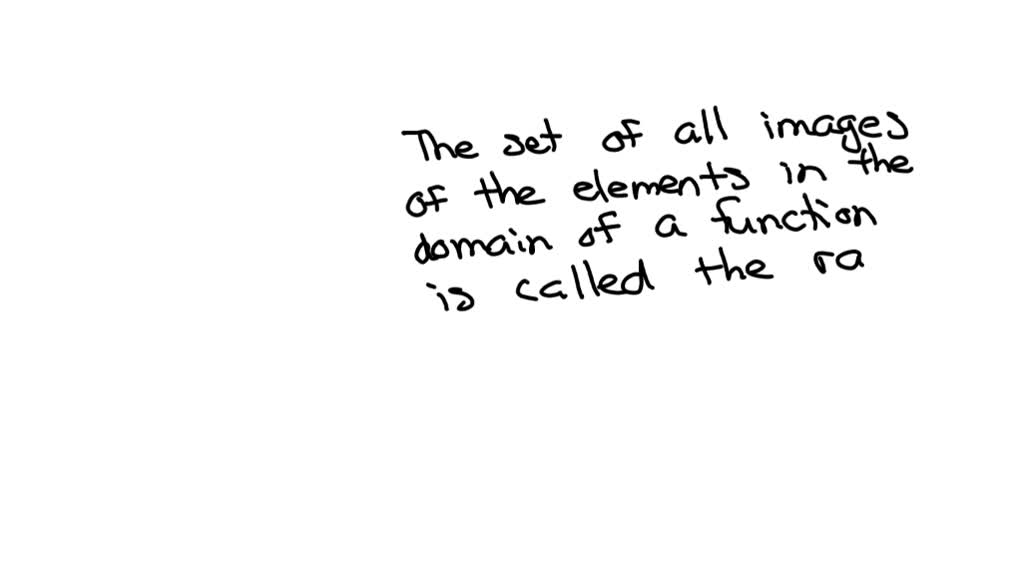 The set of all images
of the elements in the
domain of a function
is called the ra